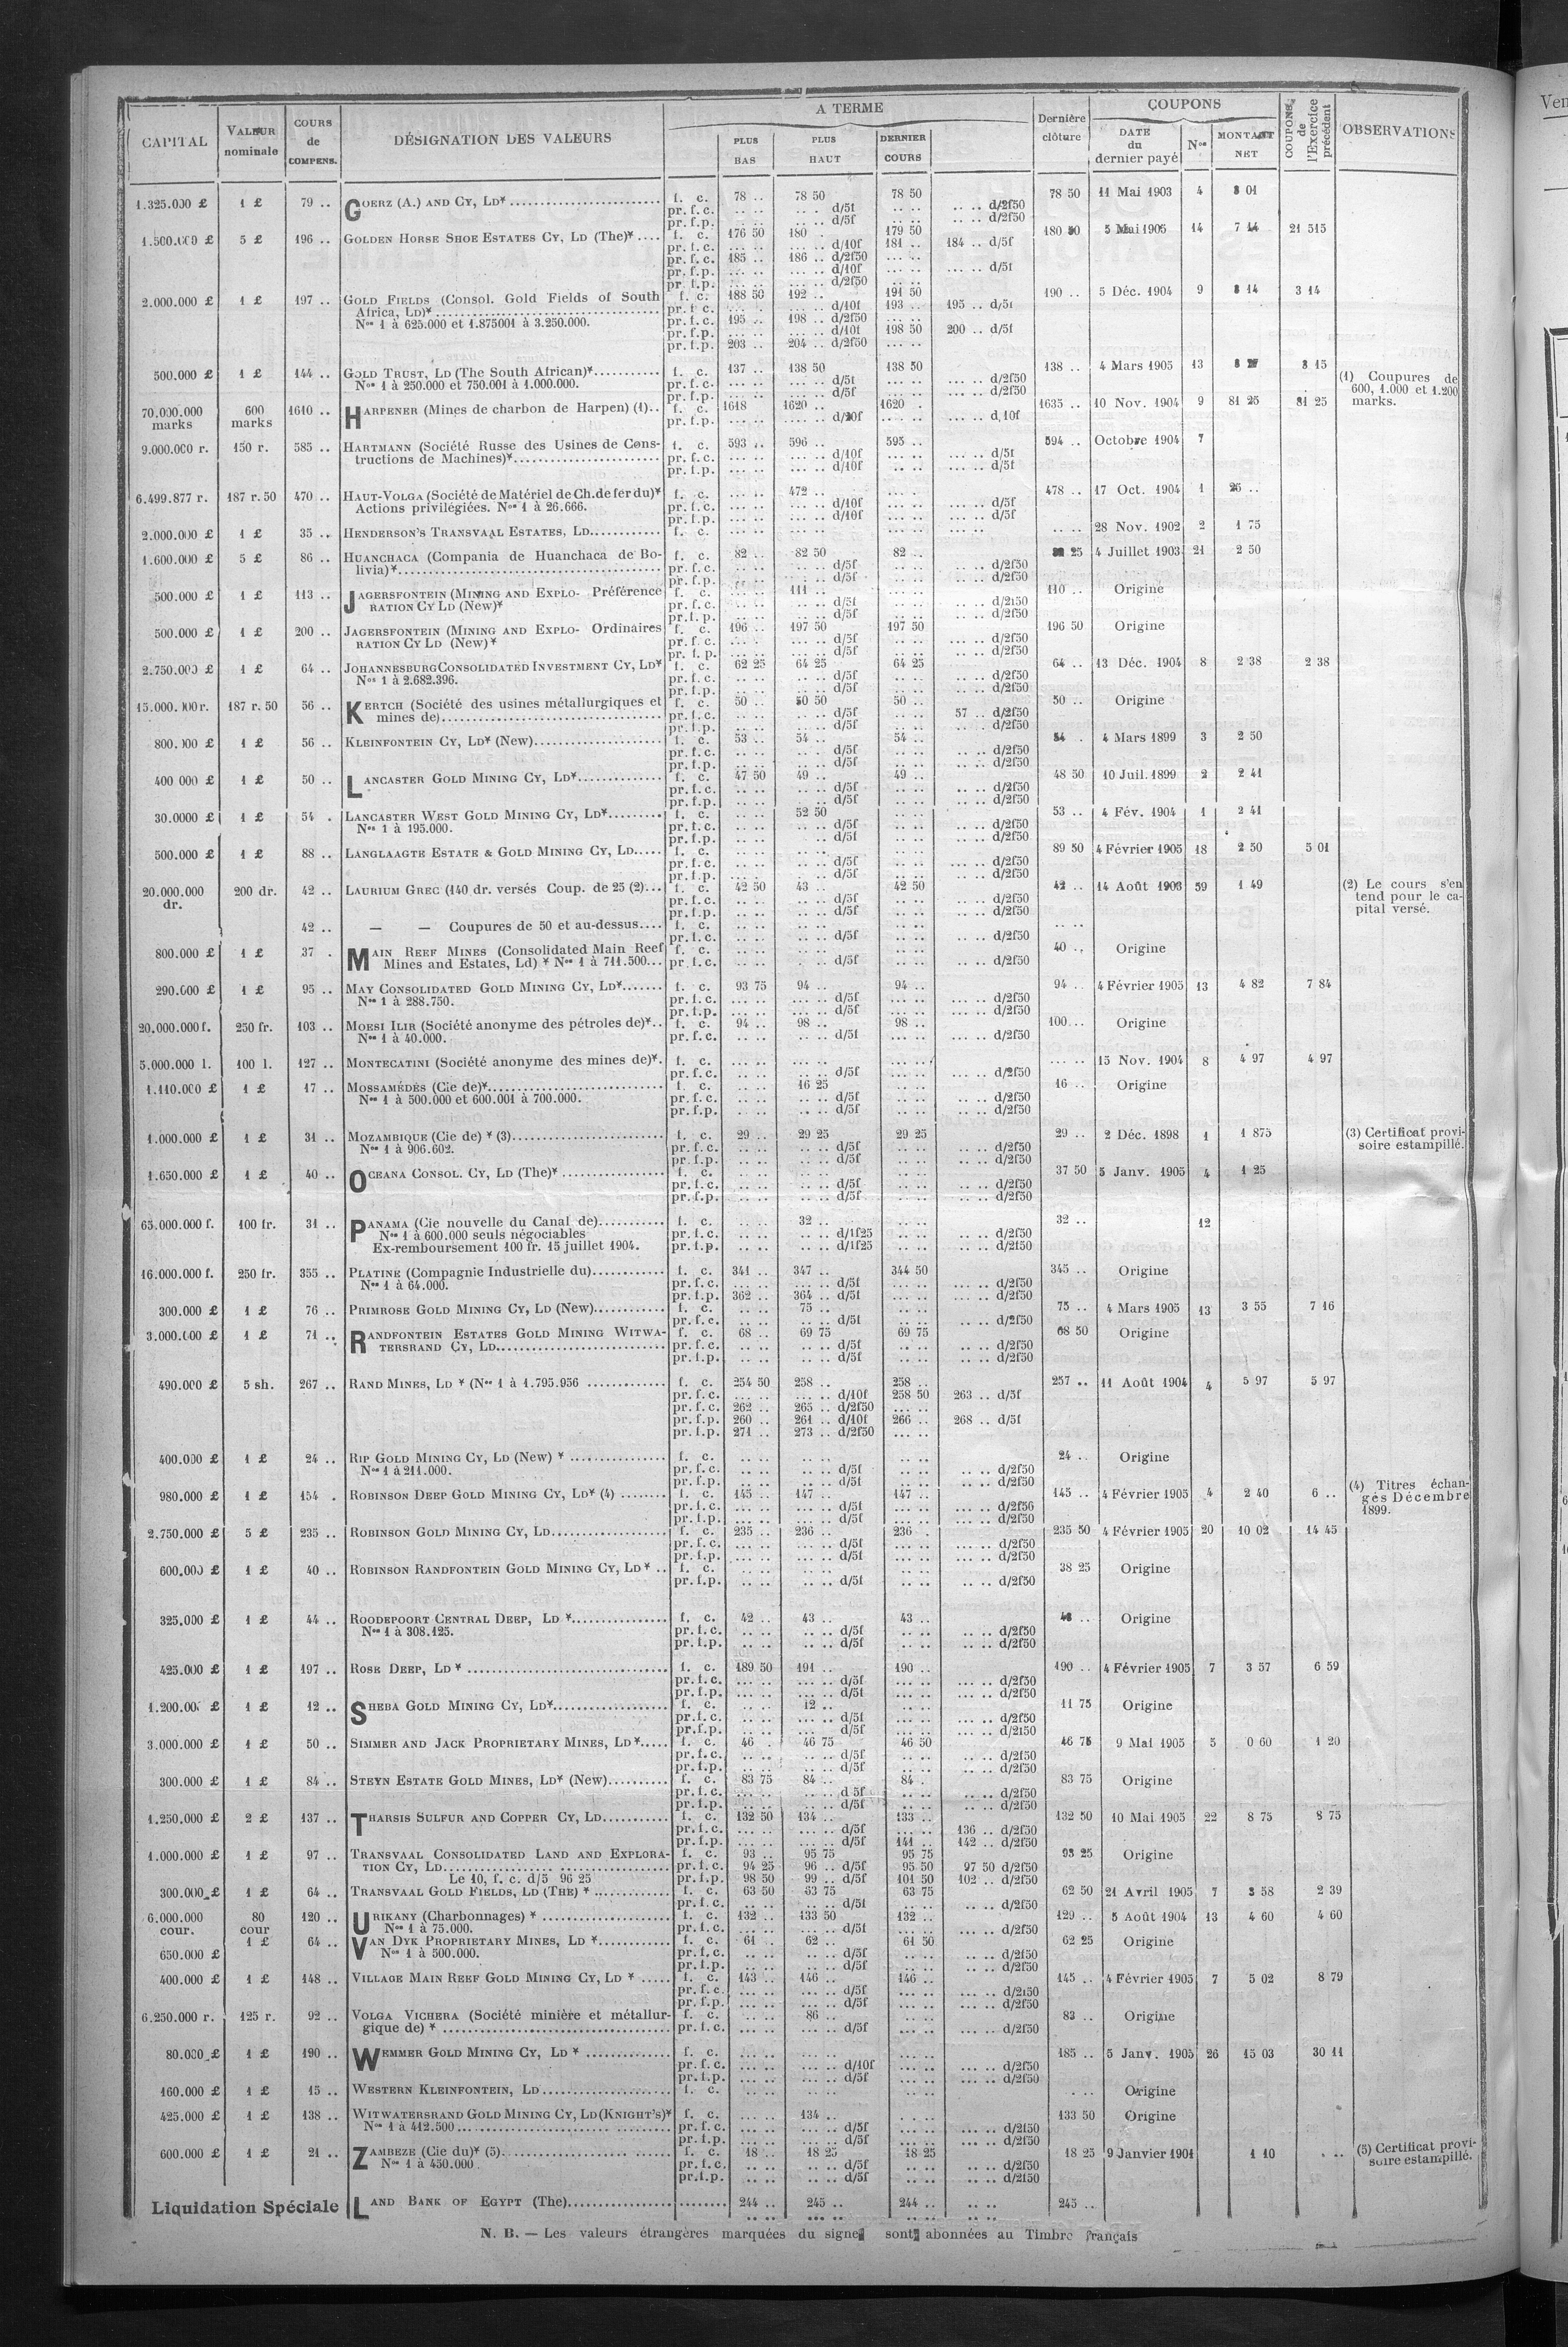 A TERME
COUPONS
CAPITAL | VALEUR nominale | COURS de COMPENS. | DÉSIGNATION DES VALEURS | PLUS BAS | PLUS HAUT | DERNIER COURS | Dernière clôture | DATE du dernier payé | Nos | MONTANT NET | COUPONS de l'Exercice précédent | OBSERVATIONS
1.325.000 £ 1 £ 79 .. GOERZ (A.) AND CY, LD* f. c. 78 .. 78 50 78 50 78 50 11 Mai 1903 4 3 01
pr. f. c. .. .. .. . d/5f .. .. .. .. d/2f50
pr. f.p. .. .. .. .. d/5f .. .. .. .. d/2f50
1.500.000 £ 5 £ 196 .. GOLDEN HORSE SHOE ESTATES CY, LD (The)* f. c. 176 50 180 . 179 50 180 50 5 Mai 1905 14 7 14 21 515
pr. f. c. ... .. ... .. d/10f 181 .. 184 .. d/5f
pr. f. c. 185 .. 186 .. d/2f50 ... ..
pr. f.p. ... .. ... .. d/10f ... .. ... .. d/5f
pr. f.p. ... .. ... .. d/2f50 ... ..
2.000.000 £ 1 £ 197 .. GOLD FIELDS (Consol. Gold Fields of South f. c. 188 50 192 .. 191 50 190 .. 5 Déc. 1904 9 3 14 3 14
Africa, LD)* pr. f. c. ... .. ... .. d/10f 193 .. 195 .. d/5f
Nos 1 à 625.000 et 1.875001 à 3.250.000. pr. f. c. 195 .. 198 .. d/2f50 ... ..
pr. f.p. ... .. ... .. d/10f 198 50 200 .. d/5f
pr. f.p. 203 .. 204 .. d/2f50 ... ..
500.000 £ 1 £ 144 .. GOLD TRUST, LD (The South African)* f. c. 137 .. 138 50 138 50 138 .. 4 Mars 1905 13 3 15
Nos 1 à 250.000 et 750.001 à 1.000.000. pr. f. c. ... .. ... .. d/5f ... .. ... .. d/2f50
pr. f.p. ... .. ... .. d/5f ... .. ... .. d/2f50
(1) Coupures de
600, 1.000 et 1.200
marks.
70.000.000 marks 600 marks 1610 .. HARPENER (Mines de charbon de Harpen) (1).. f. c. 1618 1620 .. 1620 . 1635 .. 10 Nov. 1904 9 81 25 81 25
pr. f.p. ... .. ... .. d/20f ... .. ... .. d,10f
9.000.000 r. 150 r. 585 .. HARTMANN (Société Russe des Usines de Cons- f. c. 593 .. 596 .. 595 .. 594 .. Octobre 1904 7
tructions de Machines)* pr. f. c. ... .. ... .. d/10f ... .. ... .. d/5f
pr. f.p. ... .. ... .. d/10f ... .. ... .. d/5f
6.499.877 r. 187 r. 50 470 .. HAUT-VOLGA (Société de Matériel de Ch. de fer du)* f. c. ... .. 472 .. ... . 478 .. 17 Oct. 1904 1 25 ..
Actions privilégiées. Nos 1 à 26.666. pr. f. c. ... .. ... .. d/10f ... .. ... .. d/5f
pr. f.p. ... .. ... .. d/10f ... .. ... .. d/5f
2.000.000 £ 1 £ 35 .. HENDERSON'S TRANSVAAL ESTATES, LD f. c. ... .. ... .. ... .. .. .. 28 Nov. 1902 2 1 75
1.600.000 £ 5 £ 86 .. HUANCHACA (Compania de Huanchaca de Bo- f. c. 82 .. 82 50 82 .. 25 4 Juillet 1903 21 2 50
livia)* pr. f. c. .. .. .. .. d/5f .. .. .. .. d/2f50
pr. f.p. .. .. .. .. d/5f .. .. .. .. d/2f50
500.000 £ 1 £ 113 .. JAGERSFONTEIN (MINING AND EXPLO- Préférence f. c. 111 .. 110 .. Origine
RATION CY LD (New)* pr. f. c. .. .. .. .. d/5f .. .. .. .. d/2f50
pr. f.p. .. .. .. .. d/5f .. .. .. .. d/2f50
500.000 £ 1 £ 200 .. JAGERSFONTEIN (MINING AND EXPLO- Ordinaires f. c. 196 .. 197 50 197 50 196 50 Origine
RATION CY LD (New)* pr. f. c. ... .. ... .. d/5f ... .. ... .. d/2f50
pr. f. p. ... .. ... .. d/5f ... .. ... .. d/2f50
2.750.000 £ 1 £ 64 .. JOHANNESBURG CONSOLIDATED INVESTMENT CY, LD* f. c. 62 25 64 25 64 25 64 .. 13 Déc. 1904 8 2 38 2 38
Nos 1 à 2.682.396. pr. f. c. .. .. .. .. d/5f .. .. .. .. d/2f50
pr. f.p. .. .. .. .. d/5f .. .. .. .. d/2f50
15.000.000 r. 187 r. 50 56 .. KERTCH (Société des usines métallurgiques et f. c. 50 .. 50 50 50 .. 50 .. Origine
mines de) pr. f. c. .. .. .. .. d/5f .. .. 57 .. d/2f50
pr. f.p. .. .. .. .. d/5f .. .. .. .. d/2f50
800.000 £ 1 £ 56 .. KLEINFONTEIN CY, LD* (New) f. c. 53 .. 54 .. 54 .. 54 . 4 Mars 1899 3 2 50
pr. f. c. .. .. .. .. d/5f .. .. .. .. d/2f50
pr. f.p. .. .. .. .. d/5f .. .. .. .. d/2f50
400.000 £ 1 £ 50 .. LANCASTER GOLD MINING CY, LD* f. c. 47 50 49 .. 49 .. 48 50 10 Juil. 1899 2 2 41
pr. f. c. .. .. .. .. d/5f .. .. .. .. d/2f50
pr. f.p. .. .. .. .. d/5f .. .. .. .. d/2f50
30.0000 £ 1 £ 54 . LANCASTER WEST GOLD MINING CY, LD* f. c. .. .. 52 50 .. .. 53 .. 4 Fév. 1904 1 2 41
Nos 1 à 195.000. pr. f. c. .. .. .. .. d/5f .. .. .. .. d/2f50
pr. f.p. .. .. .. .. d/5f .. .. .. .. d/2f50
500.000 £ 1 £ 88 .. LANGLAAGTE ESTATE & GOLD MINING CY, LD f. c. .. .. .. .. .. .. 89 50 4 Février 1905 18 2 50 5 01
pr. f. c. .. .. .. .. d/5f .. .. ... .. d/2f50
pr. f.p. .. .. .. .. d/5f .. .. .. .. d/2f50
20.000.000 dr. 200 dr. 42 .. LAURIUM GREC (140 dr. versés Coup. de 25 (2)... f. c. 42 50 43 .. 42 50 42 .. 14 Août 1903 59 1 49
pr. f. c. .. .. .. .. d/5f .. .. .. .. d/2f50
pr. f.p. .. .. .. .. d/5f .. .. .. .. d/2f50
(2) Le cours s'en
tend pour le ca-
pital versé.
42 .. — — Coupures de 50 et au-dessus f. c. .. .. .. .. .. .. .. ..
pr. f. c. .. .. .. .. d/5f .. .. .. .. d/2f50
800.000 £ 1 £ 37 . MAIN REEF MINES (Consolidated Main Reef f. c. .. .. .. .. .. .. 40 .. Origine
Mines and Estates, Ld) * Nos 1 à 711.500... pr. f. c. .. .. . .. d/5f .. .. .. .. d/2f50
290.000 £ 1 £ 95 .. MAY CONSOLIDATED GOLD MINING CY, LD* f. c. 93 75 94 .. 94 .. 94 .. 4 Février 1905 13 4 82 7 84
Nos 1 à 288.750. pr. f. c. ... .. ... .. d/5f ... .. ... .. d/2f50
pr. f.p. ... .. ... .. d/5f ... .. ... .. d/2f50
20.000.000 f. 250 fr. 103 .. MOESI ILIR (Société anonyme des pétroles de)*.. f. c. 94 .. 98 .. 98 .. 100 .. Origine
Nos 1 à 40.000. pr. f. c. .. .. .. .. d/5f ... .. ... .. d/2f50
5.000.000 l. 100 l. 127 .. MONTECATINI (Société anonyme des mines de)*. f. c. ... .. ... .. ... .. ... .. 15 Nov. 1904 8 4 97 4 97
pr. f. c. .. .. .. .. d/5f .. .. ... .. d/2f50
1.110.000 £ 1 £ 17 .. MOSSAMÉDÈS (Cie de)* f. c. .. .. 16 25 .. .. 16 .. Origine
Nos 1 à 500.000 et 600.001 à 700.000. pr. f. c. .. .. .. .. d/5f .. .. .. .. d/2f50
pr. f.p. .. .. .. .. d/5f .. .. .. .. d/2f50
1.000.000 £ 1 £ 31 .. MOZAMBIQUE (Cie de) * (3) f. c. 29 .. 29 25 29 25 29 .. 2 Déc. 1898 1 1 875
Nos 1 à 906.602. pr. f. c. .. .. .. .. d/5f .. .. .. .. d/2f50
pr. f.p. .. .. .. .. d/5f .. .. .. .. d/2f50
(3) Certificat provi-
soire estampillé.
1.650.000 £ 1 £ 40 .. OCEANA CONSOL. CY, LD (The)* f. c. .. .. .. .. .. .. 37 50 5 Janv. 1905 4 1 25
pr. f. c. .. .. .. .. d/5f .. .. .. .. d/2f50
pr. f.p. .. .. .. .. d/5f .. .. .. .. d/2f50
65.000.000 f. 100 fr. 31 .. PANAMA (Cie nouvelle du Canal de) f. c. .. .. 32 .. .. .. 32 .. 12
Nos 1 à 600.000 seuls négociables pr. f. c. .. .. .. .. d/1f25 .. .. .. .. d/2f50
Ex-remboursement 100 fr. 15 juillet 1904. pr. f.p. .. .. .. .. d/1f25 .. .. .. .. d/2f50
16.000.000 f. 250 fr. 355 .. PLATINE (Compagnie Industrielle du) f. c. 341 .. 347 .. 344 50 345 .. Origine
Nos 1 à 64.000. pr. f. c. ... .. ... .. d/5f ... .. ... .. d/2f50
pr. f.p. 362 .. 364 .. d/5f ... .. ... .. d/2f50
300.000 £ 1 £ 76 .. PRIMROSE GOLD MINING CY, LD (New) f. c. .. .. 75 .. .. .. 75 .. 4 Mars 1905 13 3 55 7 16
pr. f. c. .. .. .. .. d/5f .. .. ... .. d/2f50
3.000.000 £ 1 £ 71 .. RANDFONTEIN ESTATES GOLD MINING WITWA- f. c. 68 .. 69 75 69 75 68 50 Origine
TERSRAND CY, LD pr. f. c. .. .. .. .. d/5f .. .. .. .. d/2f50
pr. f.p. .. .. .. .. d/5f .. .. .. .. d/2f50
490.000 £ 5 sh. 267 .. RAND MINES, LD * (Nos 1 à 1.795.956 f. c. 254 50 258 .. 258 .. 257 .. 11 Août 1904 4 5 97 5 97
pr. f. c. ... .. ... .. d/10f 258 50 263 .. d/5f
pr. f. c. 262 .. 265 .. d/2f50 ... ..
pr. f.p. 260 .. 261 .. d/10f 266 .. 268 .. d/5f
pr. f.p. 271 .. 273 .. d/2f50 ... ..
400.000 £ 1 £ 24 .. RIP GOLD MINING CY, LD (New) * f. c. .. .. .. .. .. .. 24 .. Origine
Nos 1 à 211.000. pr. f. c. .. .. .. .. d/5f .. .. .. .. d/2f50
pr. f.p. .. .. .. .. d/5f .. .. .. .. d/2f50
980.000 £ 1 £ 154 . ROBINSON DEEP GOLD MINING CY, LD* (4) f. c. 145 .. 147 .. 147 .. 145 .. 4 Février 1905 4 2 40 6 ..
pr. f. c. ... .. ... .. d/5f ... .. ... .. d/2f50
pr. f.p. ... .. ... .. d/5f ... .. ... .. d/2f50
(4) Titres échan-
gés Décembre
1899.
2.750.000 £ 5 £ 235 .. ROBINSON GOLD MINING CY, LD f. c. 235 .. 236 .. 236 . 235 50 4 Février 1905 20 10 02 14 45
pr. f. c. ... .. ... .. d/5f ... .. ... .. d/2f50
pr. f.p. ... .. ... .. d/5f ... .. ... .. d/2f50
600.000 £ 1 £ 40 .. ROBINSON RANDFONTEIN GOLD MINING CY, LD * .. f. c. .. .. .. .. .. .. 38 25 Origine
pr. f.p. .. .. .. .. d/5f .. .. .. .. d/2f50
325.000 £ 1 £ 44 .. ROODEPOORT CENTRAL DEEP, LD * f. c. 42 .. 43 .. 43 .. Origine
Nos 1 à 308.125. pr. f. c. .. .. .. .. d/5f .. .. .. .. d/2f50
pr. f.p. .. .. .. .. d/5f .. .. .. .. d/2f50
425.000 £ 1 £ 197 .. ROSE DEEP, LD * f. c. 189 50 191 .. 190 .. 190 .. 4 Février 1905 7 3 57 6 59
pr. f. c. ... .. ... .. d/5f ... .. ... .. d/2f50
pr. f.p. ... .. ... .. d/5f ... .. ... .. d/2f50
1.200.000 £ 1 £ 12 .. SHEBA GOLD MINING CY, LD* f. c. .. .. 12 .. .. .. 11 75 Origine
pr. f. c. .. .. .. .. d/5f .. .. ... .. d/2f50
pr. f.p. .. .. .. d/5f .. .. ... .. d/2f50
3.000.000 £ 1 £ 50 .. SIMMER AND JACK PROPRIETARY MINES, LD * f. c. 46 . 46 75 46 50 46 75 9 Mai 1905 5 0 60 1 20
pr. f. c. .. .. .. .. d/5f .. .. .. .. d/2f50
pr. f.p. .. .. .. .. d/5f .. .. .. .. d/2f50
300.000 £ 1 £ 84 .. STEYN ESTATE GOLD MINES, LD* (New) f. c. 83 75 84 .. 84 . 83 75 Origine
pr. f. c. .. .. .. .. d 5f .. .. .. .. d/2f50
pr. f.p. .. .. .. .. d/5f .. .. .. .. d/2f50
1.250.000 £ 2 £ 137 .. THARSIS SULFUR AND COPPER CY, LD f. c. 132 50 134 .. 133 .. 132 50 10 Mai 1905 22 8 75 8 75
pr. f. c. ... .. ... .. d/5f ... .. 136 .. d/2f50
pr. f.p. ... .. ... .. d/5f 141 .. 142 .. d/2f50
1.000.000 £ 1 £ 97 .. TRANSVAAL CONSOLIDATED LAND AND EXPLORA- f. c. 93 .. 95 75 95 75 93 25 Origine
TION CY, LD pr. f. c. 94 25 96 .. d/5f 95 50 97 50 d/2f50
Le 10, f. c. d/5 96 25 pr. f.p. 98 50 99 .. d/5f 101 50 102 .. d/2f50
300.000 £ 1 £ 64 .. TRANSVAAL GOLD FIELDS, LD (THE) * f. c. 63 50 63 75 63 75 62 50 21 Avril 1905 7 3 58 2 39
pr. f. c. .. .. .. .. d/5f .. .. .. .. d/2f50
6.000.000 cour. 80 cour 120 .. URIKANY (Charbonnages) * f. c. 132 .. 133 50 132 .. 129 .. 5 Août 1904 13 4 60 4 60
Nos 1 à 75.000. pr. f. c. ... .. ... .. d/5f ... .. ... .. d/2f50
650.000 £ 1 £ 64 .. VAN DYK PROPRIETARY MINES, LD * f. c. 61 .. 62 .. 61 50 62 25 Origine
Nos 1 à 500.000. pr. f. c. .. .. .. .. d/5f .. .. .. .. d/2f50
pr. f.p. .. .. .. .. d/5f .. .. .. .. d/2f50
400.000 £ 1 £ 148 .. VILLAGE MAIN REEF GOLD MINING CY, LD * f. c. 143 .. 146 .. 146 .. 145 .. 4 Février 1905 7 5 02 8 79
pr. f. c. ... .. ... .. d/5f ... .. ... .. d/2f50
pr. f.p. ... .. ... .. d/5f ... .. ... .. d/2f50
6.250.000 r. 125 r. 92 .. VOLGA VICHERA (Société minière et métallur- f. c. .. .. 86 .. .. .. 83 .. Origine
gique de) * pr. f. c. ... .. ... .. d/5f ... .. ... .. d/2f50
80.000 £ 1 £ 190 .. WEMMER GOLD MINING CY, LD * f. c. ... .. ... .. ... .. 185 .. 5 Janv. 1905 26 15 03 30 11
pr. f. c. ... .. ... .. d/10f ... .. ... .. d/2f50
pr. f.p. ... .. ... .. d/5f ... .. ... .. d/2f50
160.000 £ 1 £ 15 .. WESTERN KLEINFONTEIN, LD f. c. .. .. .. .. .. .. . .. Origine
425.000 £ 1 £ 138 .. WITWATERSRAND GOLD MINING CY, LD (KNIGHT'S)* f. c. ... .. 134 .. .. .. 133 50 Origine
Nos 1 à 412.500 pr. f. c. ... .. ... .. d/5f ... .. ... .. d/2f50
pr. f.p. ... .. ... .. d/5f ... .. ... .. d/2f50
600.000 £ 1 £ 21 .. ZAMBEZE (Cie du)* (5) f. c. 18 .. 18 25 18 25 18 25 9 Janvier 1901 1 10 . ..
Nos 1 à 450.000 pr. f. c. .. .. .. .. d/5f .. .. .. .. d/2f50
pr. f.p. .. .. .. .. d/5f .. .. .. .. d/2f50
(5) Certificat provi-
soire estampillé.
Liquidation Spéciale LAND BANK OF EGYPT (The) 244 .. 245 .. 244 .. .. .. 245 ..
N. B. — Les valeurs étrangères marquées du signe sont abonnées au Timbre français
Ven